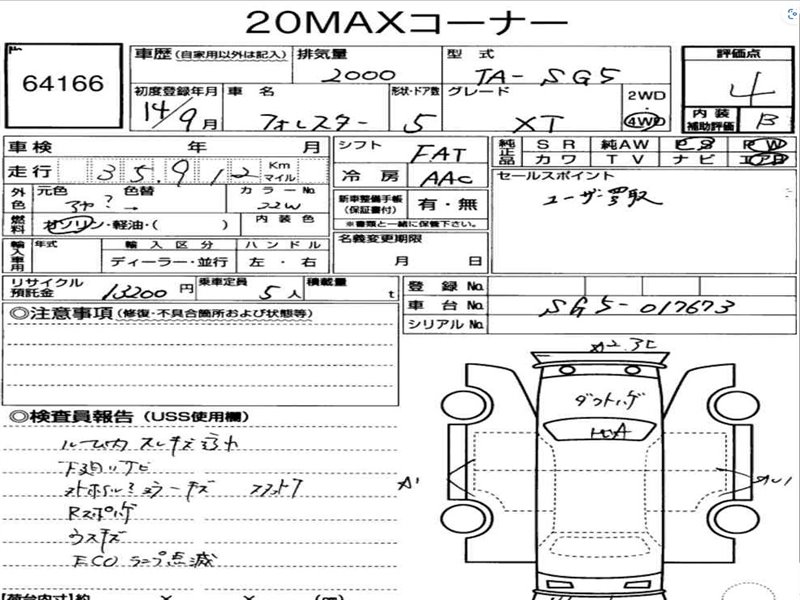 20MAXコーナー
64166
車歴 (自家用以外は記入)
排気量
2000
型式
TA-SG5
評価点
4
初度登録年月
14/9月
車名
フォレスター
形状・ドア数
5
グレード
XT
2WD
・
4WD
内装
補助評価
B
車検 年 月
シフト
FAT
純正品
SR 純AW PS PW
カワ TV ナビ エアB
走行
35,912
Km
マイル
冷房
AAC
セールスポイント
ユーザー買取
外色
元色
色替
?→
カラーNo.
22W
新車整備手帳
(保証書付)
有・無
※書類と一緒に保管下さい。
燃料
ガソリン・軽油・( )
内装色
名義変更期限
月 日
輸入車用
年式
輸入区分
ハンドル
ディーラー・並行
左・右
リサイクル
預託金
13200円
乗車定員
5人
積載量
t
登録No.
車台No.
SG5-017673
シリアルNo.
◎注意事項(修復・不具合箇所および状態等)
◎検査員報告(USS使用欄)
ルーム内スレキズ汚れ
下廻りサビ
Rスポイラー
ウスキズ
ECOランプ点滅
A2.3C
A1